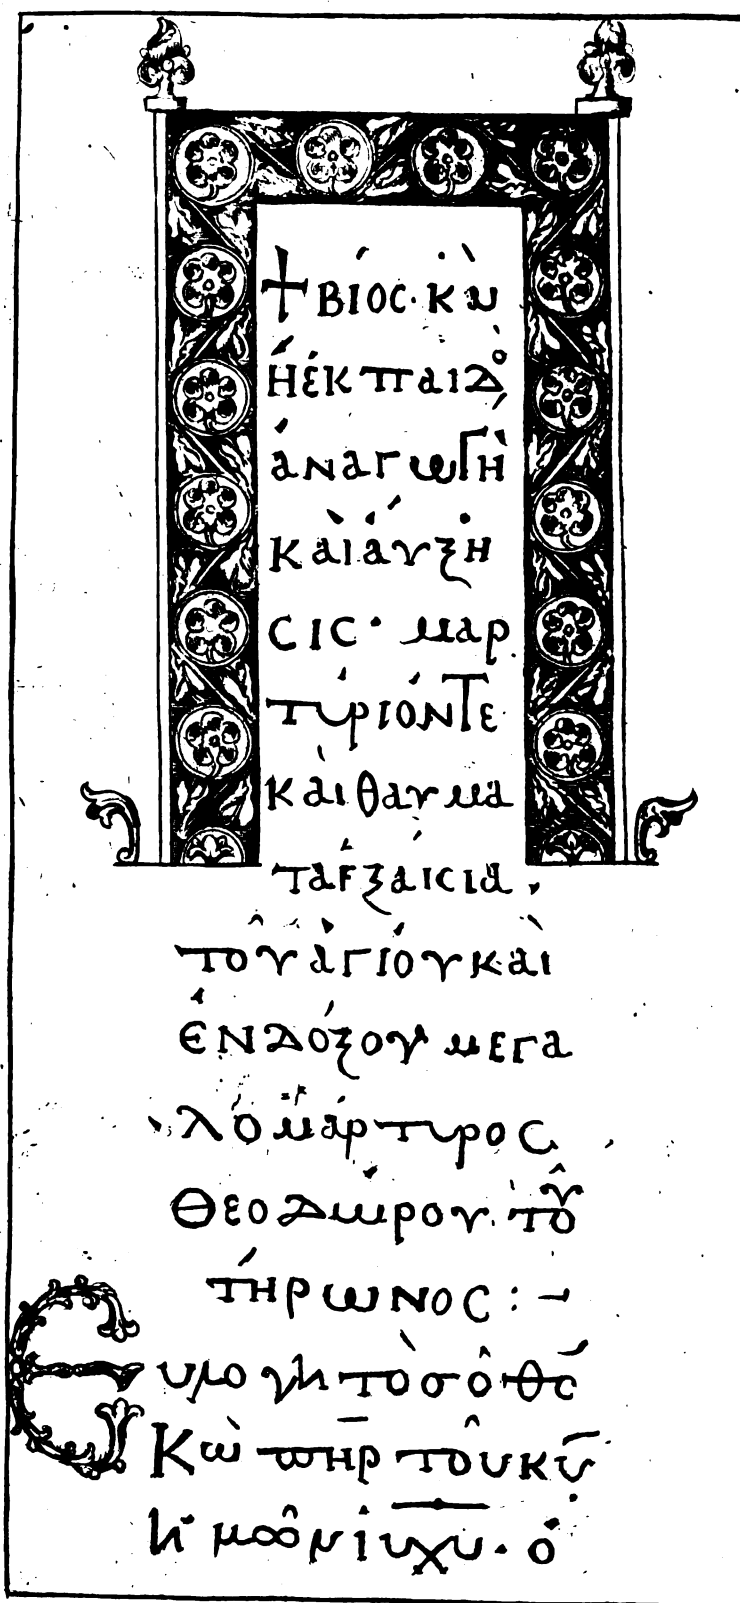 + βίος· κὺ
ἡ ἐκ παιδὸ
ἀναγωγὴ
καὶ ἄυξη
σις· μαρ
τύριόν τε
καὶ θαυμα
τα ἐξαίσια,
τοῦ ἁγίου καὶ
ἐνδόξου μεγα
λομάρτυρος
Θεοδώρου τοῦ
τήρωνος :-
Ευλογητὸσ ὁ θς
Κὼ πηρ τοῦ κυ
ἡμῶν ιυ χυ· ὁ